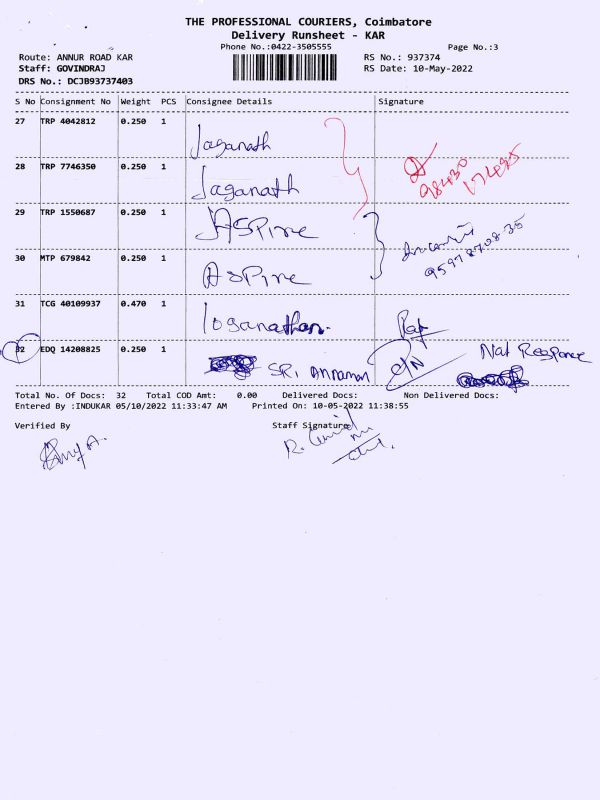 THE PROFESSIONAL COURIERS, Coimbatore
Delivery Runsheet - KAR
Phone No.:0422-3505555 Page No.:3
Route: ANNUR ROAD KAR RS No.: 937374
Staff: GOVINDRAJ RS Date: 10-May-2022
DRS No.: DCJB93737403
S No Consignment No Weight PCS Consignee Details Signature
27 TRP 4042812 0.250 1 Jaganath
28 TRP 7746350 0.250 1 Jaganath 98430
17425
29 TRP 1550687 0.250 1 ASPire
30 MTP 679842 0.250 1 ASPire 9597870835
31 TCG 40109937 0.470 1 loganathan.
32 EDQ 14208825 0.250 1 SRi Annaman Not Responce
Total No. Of Docs: 32 Total COD Amt: 0.00 Delivered Docs: Non Delivered Docs:
Entered By :INDUKAR 05/10/2022 11:33:47 AM Printed On: 10-05-2022 11:38:55
Verified By Staff Signature